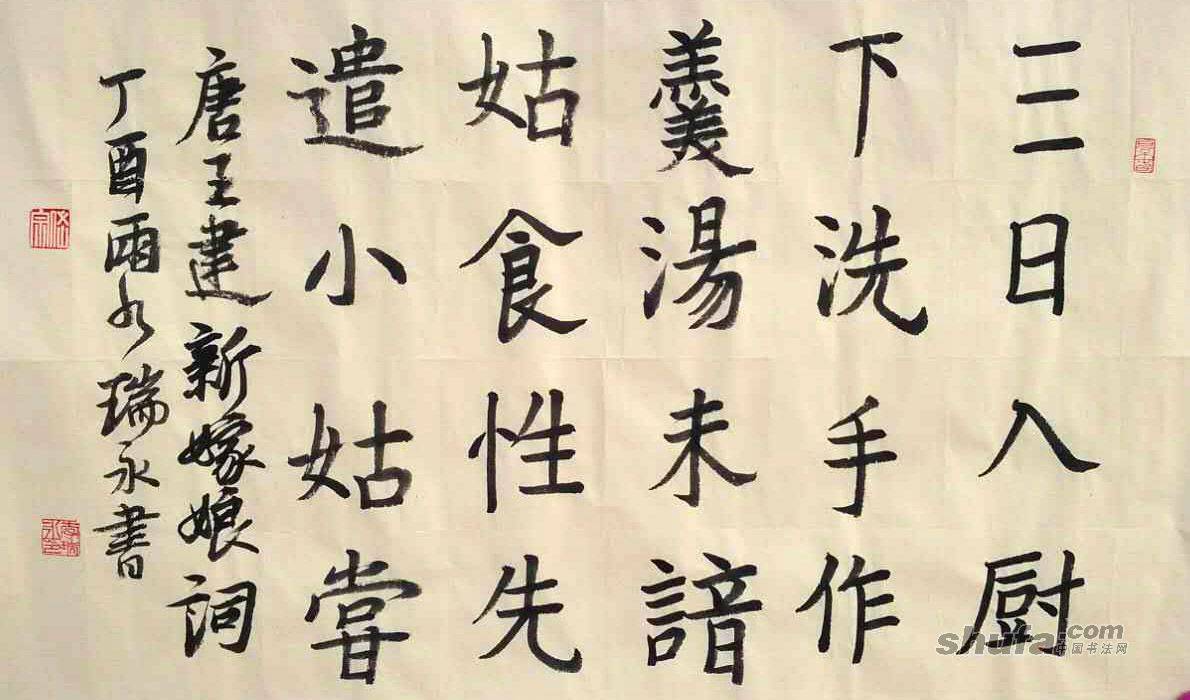 三日入厨
下洗手作
羹湯未諳
姑食性先
遣小姑嘗
唐王建新嫁娘詞
丁酉雨水瑞永書
shufa.com
中国书法网